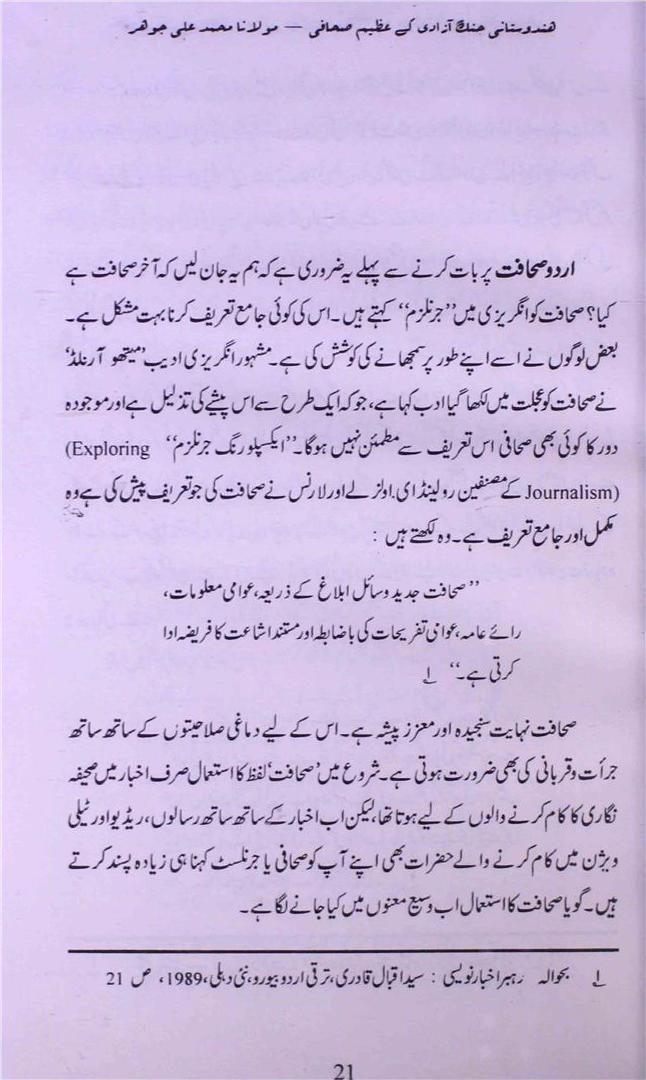 ہندوستانی جنگ آزادی کے عظیم صحافی — مولانا محمد علی جوہر
اردو صحافت پر بات کرنے سے پہلے یہ ضروری ہے کہ ہم یہ جان لیں کہ آخر صحافت ہے
کیا؟ صحافت کو انگریزی میں ”جرنلزم“ کہتے ہیں۔ اس کی کوئی جامع تعریف کرنا بہت مشکل ہے۔
بعض لوگوں نے اسے اپنے طور پر سمجھانے کی کوشش کی ہے۔ مشہور انگریزی ادیب ’میتھو آرنلڈ‘
نے صحافت کو عجلت میں لکھا گیا ادب کہا ہے، جو کہ ایک طرح سے اس پیشے کی تذلیل ہے اور موجودہ
دور کا کوئی بھی صحافی اس تعریف سے مطمئن نہیں ہوگا۔ ”ایکسپلورنگ جرنلزم“ (Exploring
Journalism) کے مصنفین رولینڈ ای۔ اولزلے اور لارنس نے صحافت کی جو تعریف پیش کی ہے وہ
مکمل اور جامع تعریف ہے۔ وہ لکھتے ہیں :
”صحافت جدید وسائل ابلاغ کے ذریعہ، عوامی معلومات،
رائے عامہ، عوامی تفریحات کی باضابطہ اور مستند اشاعت کا فریضہ ادا
کرتی ہے۔“ ۱؎
صحافت نہایت سنجیدہ اور معزز پیشہ ہے۔ اس کے لیے دماغی صلاحیتوں کے ساتھ ساتھ
جرأت و قربانی کی بھی ضرورت ہوتی ہے۔ شروع میں ’صحافت‘ لفظ کا استعمال صرف اخبار میں صحیفہ
نگاری کا کام کرنے والوں کے لیے ہوتا تھا، لیکن اب اخبار کے ساتھ ساتھ رسالوں، ریڈیو اور ٹیلی
ویژن میں کام کرنے والے حضرات بھی اپنے آپ کو صحافی یا جرنلسٹ کہنا ہی زیادہ پسند کرتے
ہیں۔ گویا صحافت کا استعمال اب وسیع معنوں میں کیا جانے لگا ہے۔
۱؎ بحوالہ رہبر اخبار نویسی : سید اقبال قادری، ترقی اردو بیورو، نئی دہلی، 1989، ص 21
21